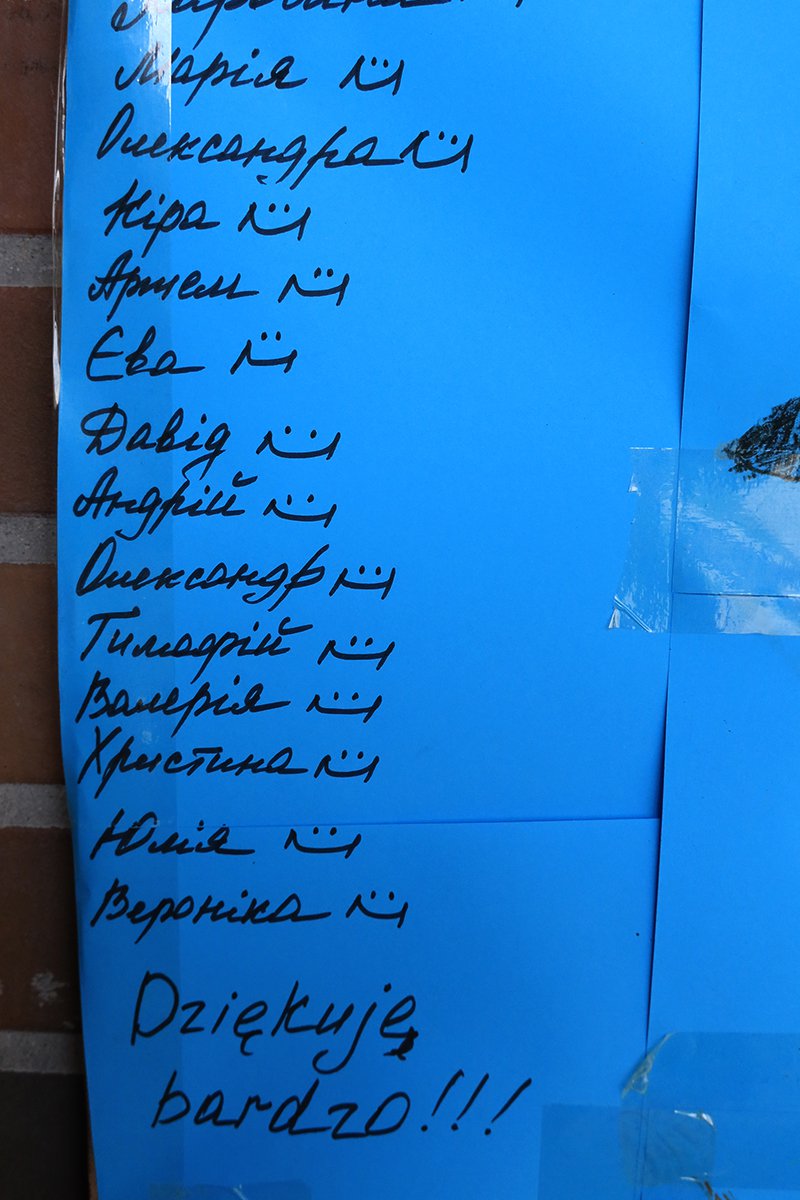 Марія
Олександра
Кіра
Артем
Єва
Давід
Андрій
Олександр
Тимофій
Валерія
Христина
Юлія
Вероніка
Dziękuję
bardzo!!!